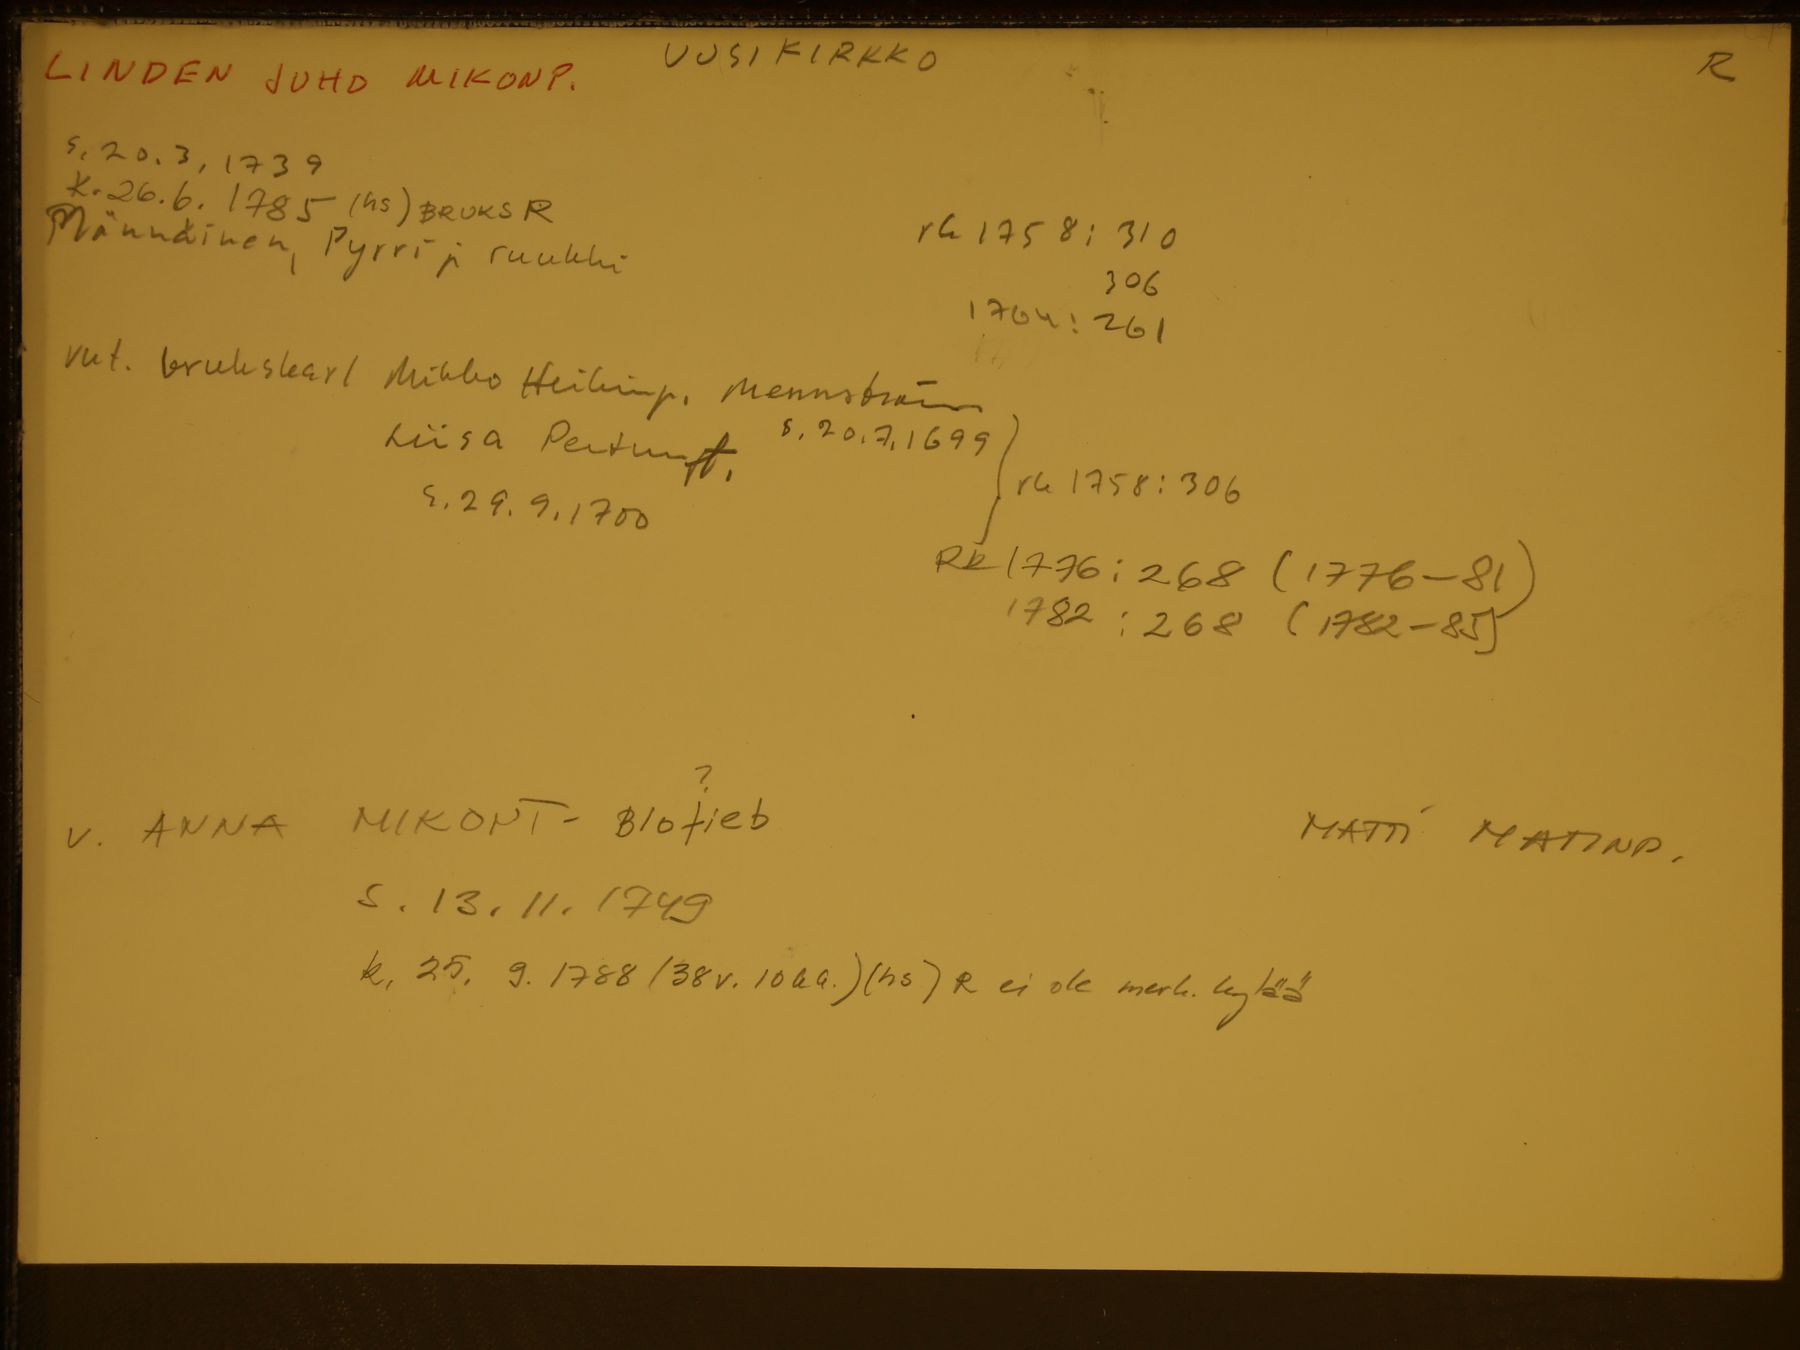 LINDEN JUHO MIKONP. UUSIKIRKKO R
s. 20.3, 1739
k. 26.6. 1785 (hs) BRUKS R
Männäinen, Pyrrij ruukki
rk 1758: 310
306
1764: 261
vut. brukskarl Mikko Heikinp. Mennström
s. 20.7.1699
Liisa Pertunt.
s. 29.9.1700
rk 1758: 306
RK 1776: 268 (1776-81)
1782: 268 (1782-85)
?
v. ANNA MIKONT- Blofieb MATTI MATINP.
s. 13. 11. 1749
k, 25. 9. 1788 (38v. 10kk.) (hs) R ei ole merk. kylää